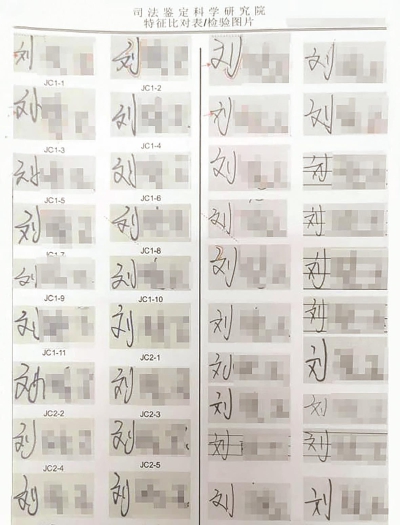 司法鉴定科学研究院
特征比对表/检验图片
刘 刘 刘 刘
JC1-1 JC1-2
刘 刘 刘 刘
JC1-3 JC1-4
刘 刘 刘 刘
JC1-5 JC1-6
刘 刘 刘 刘
JC1-7 JC1-8
刘 刘 刘 刘
JC1-9 JC1-10
刘 刘 刘 刘
JC1-11 JC2-1
刘 刘 刘 刘
JC2-2 JC2-3
刘 刘 刘 刘
JC2-4 JC2-5
刘 刘 刘 刘
刘 刘